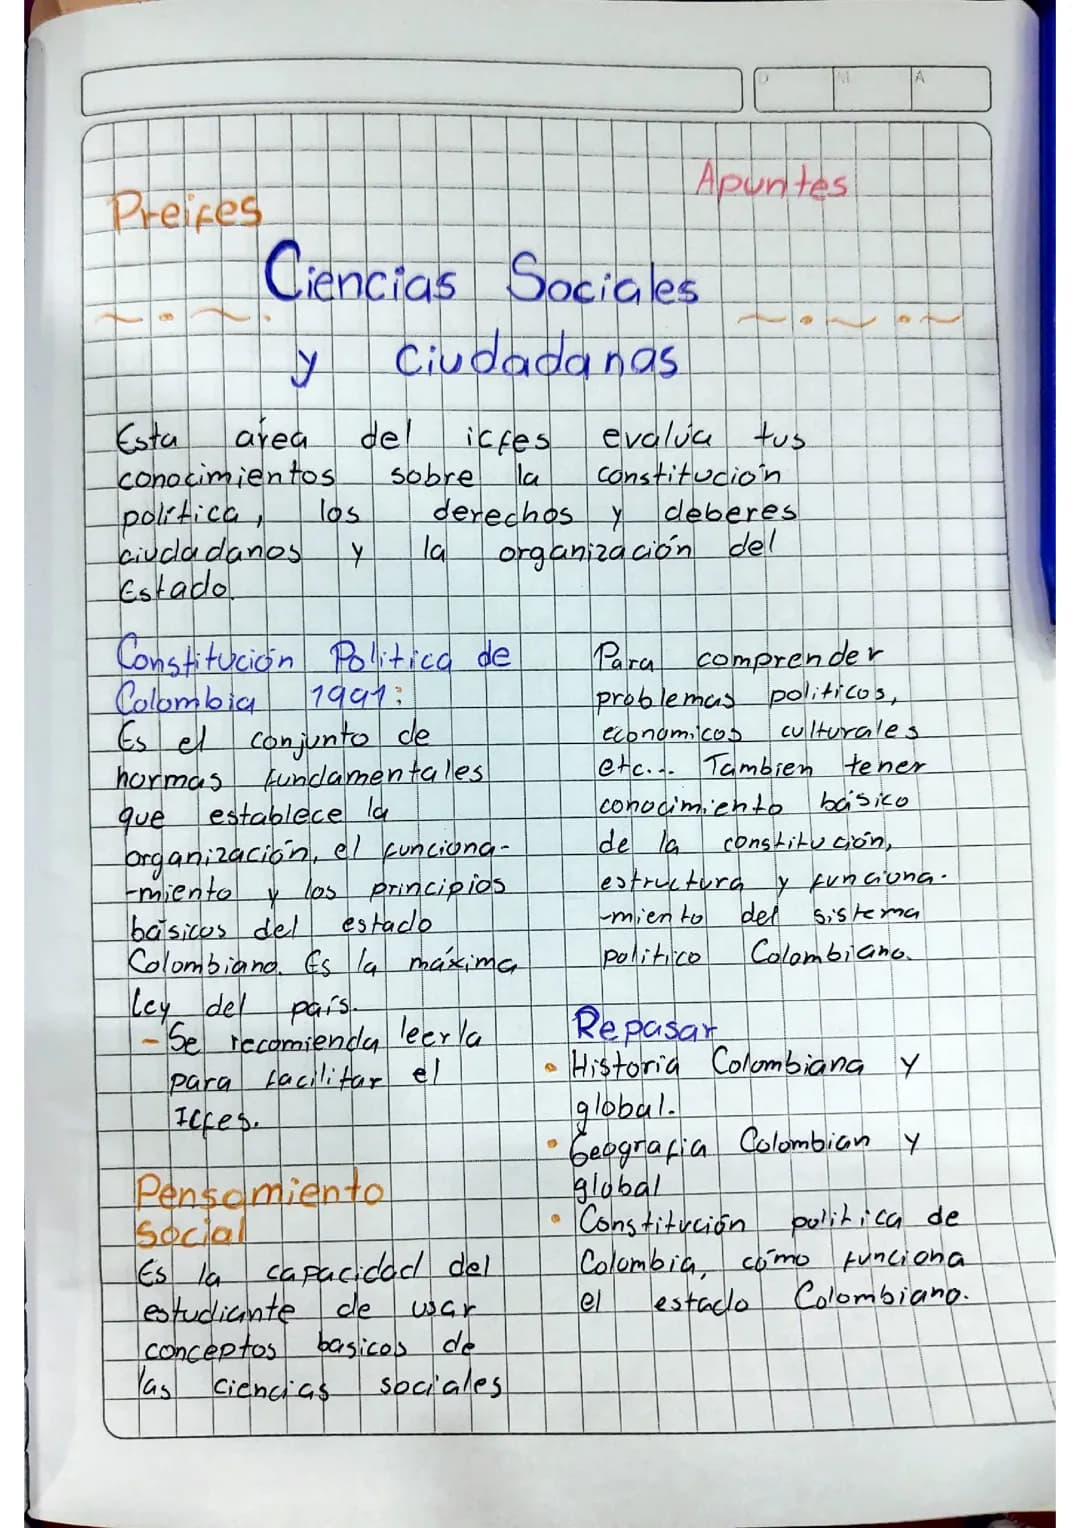 D M A
Apuntes
Preifes
Ciencias Sociales
y Ciudadanas
Esta área del icfes evalúa tus
conocimientos sobre la constitución
política, los derechos y deberes
ciudadanos y la organización del
Estado.
Constitución Politica de
Colombia 1991:
Es el conjunto de
normas fundamentales
que establece la
organización, el funciona-
-miento y los principios
básicos del estado
Colombiano. Es la máxima
ley del país.
- Se recomienda leerla
para facilitar el
Icfes.
Pensamiento
social
Es la capacidad del
estudiante de usar
conceptos basicos de
las ciencias sociales
Para comprender
problemas politicos,
economicos culturales
etc... Tambien tener
conocimiento básico
de la constitución,
estructura y funciona-
-miento del sistema
politico Colombiano.
Repasar
• Historia Colombiana y
global.
• Geografia Colombian y
global
• Constitución politica de
Colombia, cómo funciona
el estado Colombiano.